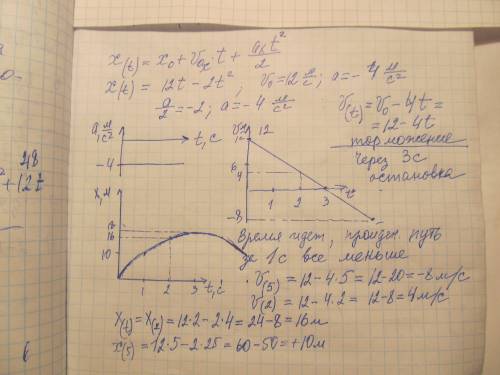 x(t) = x₀ + v₀ₓ·t + aₓt²/2
x(t) = 12t − 2t², v₀ = 12 м/с; a = −4 м/с²
a/2 = −2; a = −4 м/с²
v(t) = v₀ − 4t =
= 12 − 4t
торможение
через 3с
остановка
a м/с²
t, c
−4
12
4
−8
1 2 3 t
x, м
18
16
10
1 2 3 t, c
Время идет, пройден. путь
за 1с все меньше
v(5) = 12 − 4·5 = 12 − 20 = −8 м/с
v(2) = 12 − 4·2 = 12 − 8 = 4 м/с
x(t) = x(2) = 12·2 − 2·4 = 24 − 8 = 16 м
x(5) = 12·5 − 2·25 = 60 − 50 = +10 м
48
+12t
6